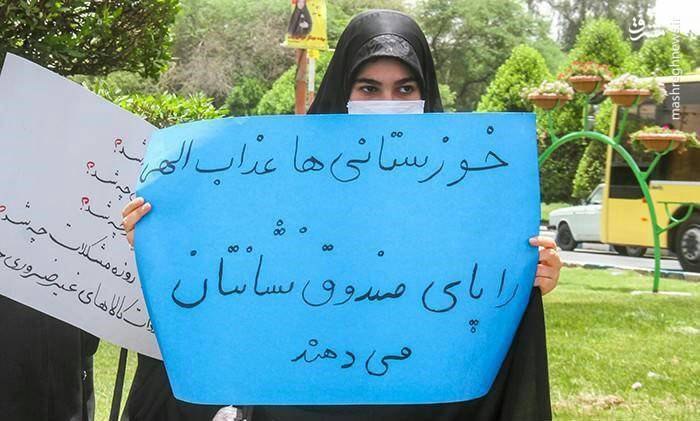 خوزستانی ها عذاب الهی
را پای صندوق نشانتان
می دهند
چه شد؟
چه شد؟
روزه مشکلات چه شد؟
کالاهای غیر ضروری
mashreghnews.ir